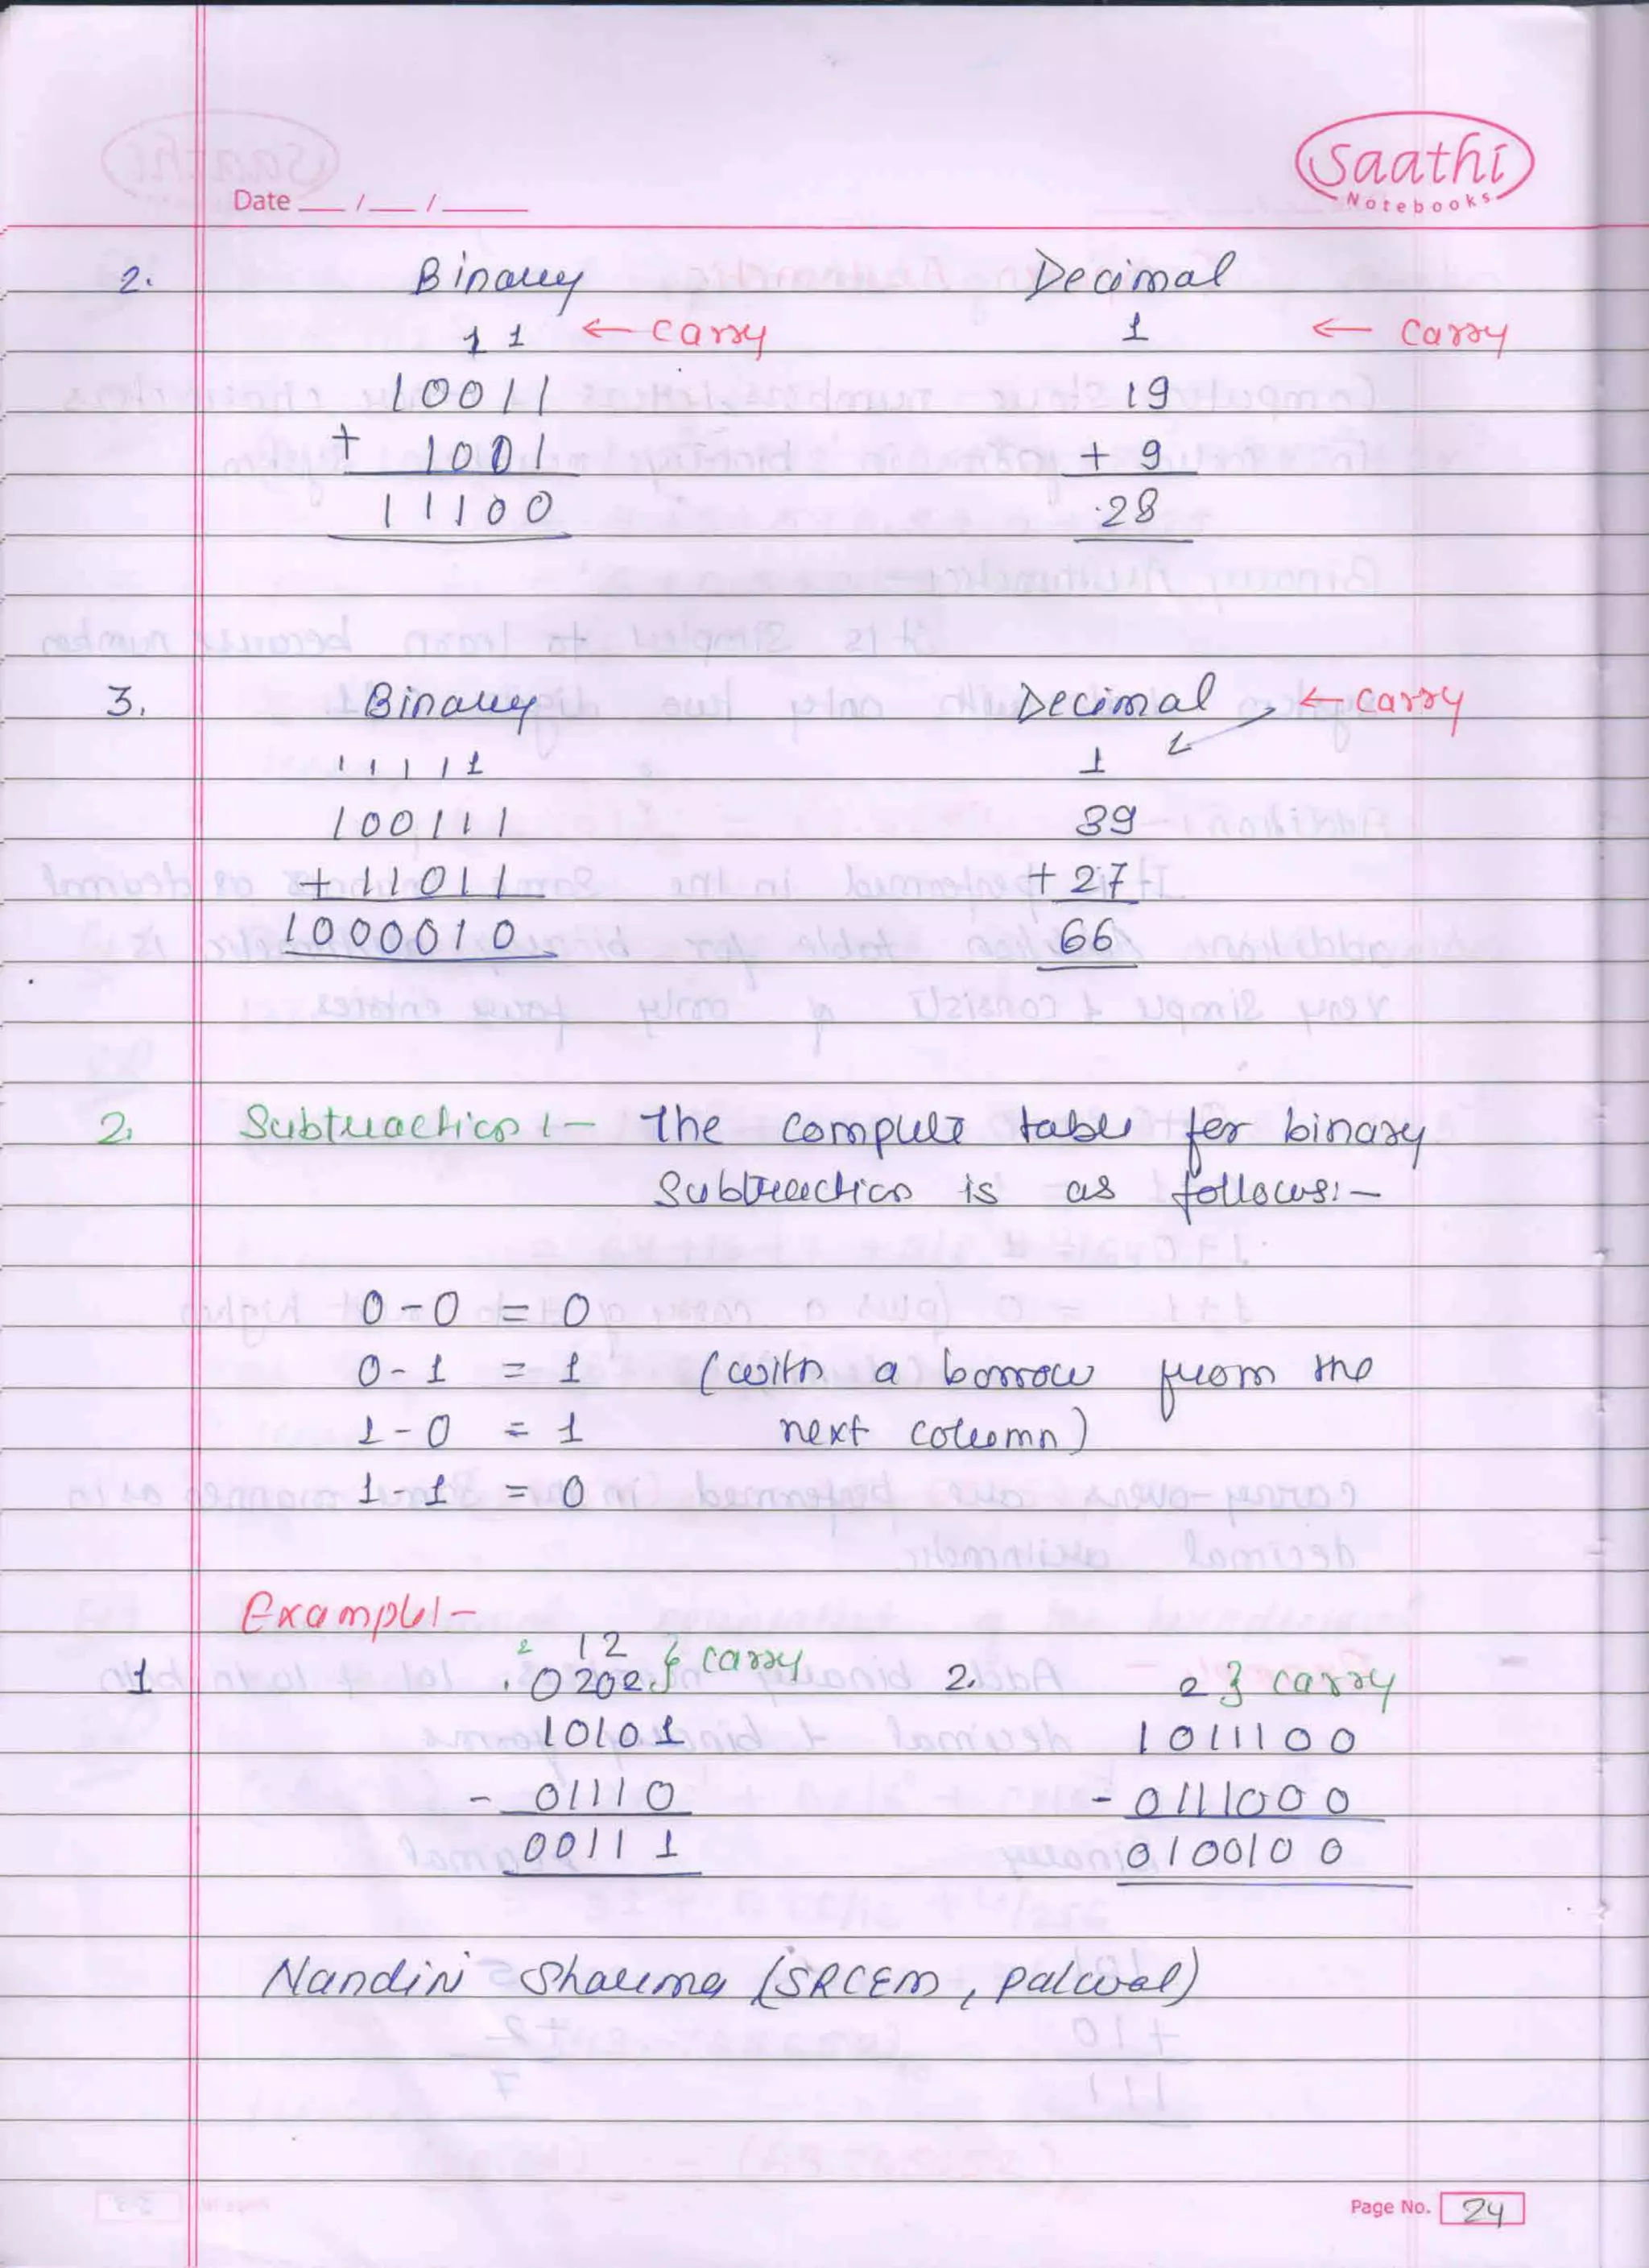 saathi
Notebooks
Date __/__/____
2. Binary Decimal
1 1 ← carry 1 ← carry
10011 19
+ 1001 + 9
11100 28
3. Binary Decimal ← carry
1 1 1 1 1 1
100111 39
+ 11011 + 27
1000010 66
2. Subtraction :- The complete table for binary
Subtraction is as follows:-
0 - 0 = 0
0 - 1 = 1 (with a borrow from the
1 - 0 = 1 next column)
1 - 1 = 0
Example:-
2 12 } carry
1 0202 2. 2 } carry
10101 1011100
- 01110 - 0111000
00111 0100100
Nandini Sharma (SRCEM, Palwal)
Page No. 24